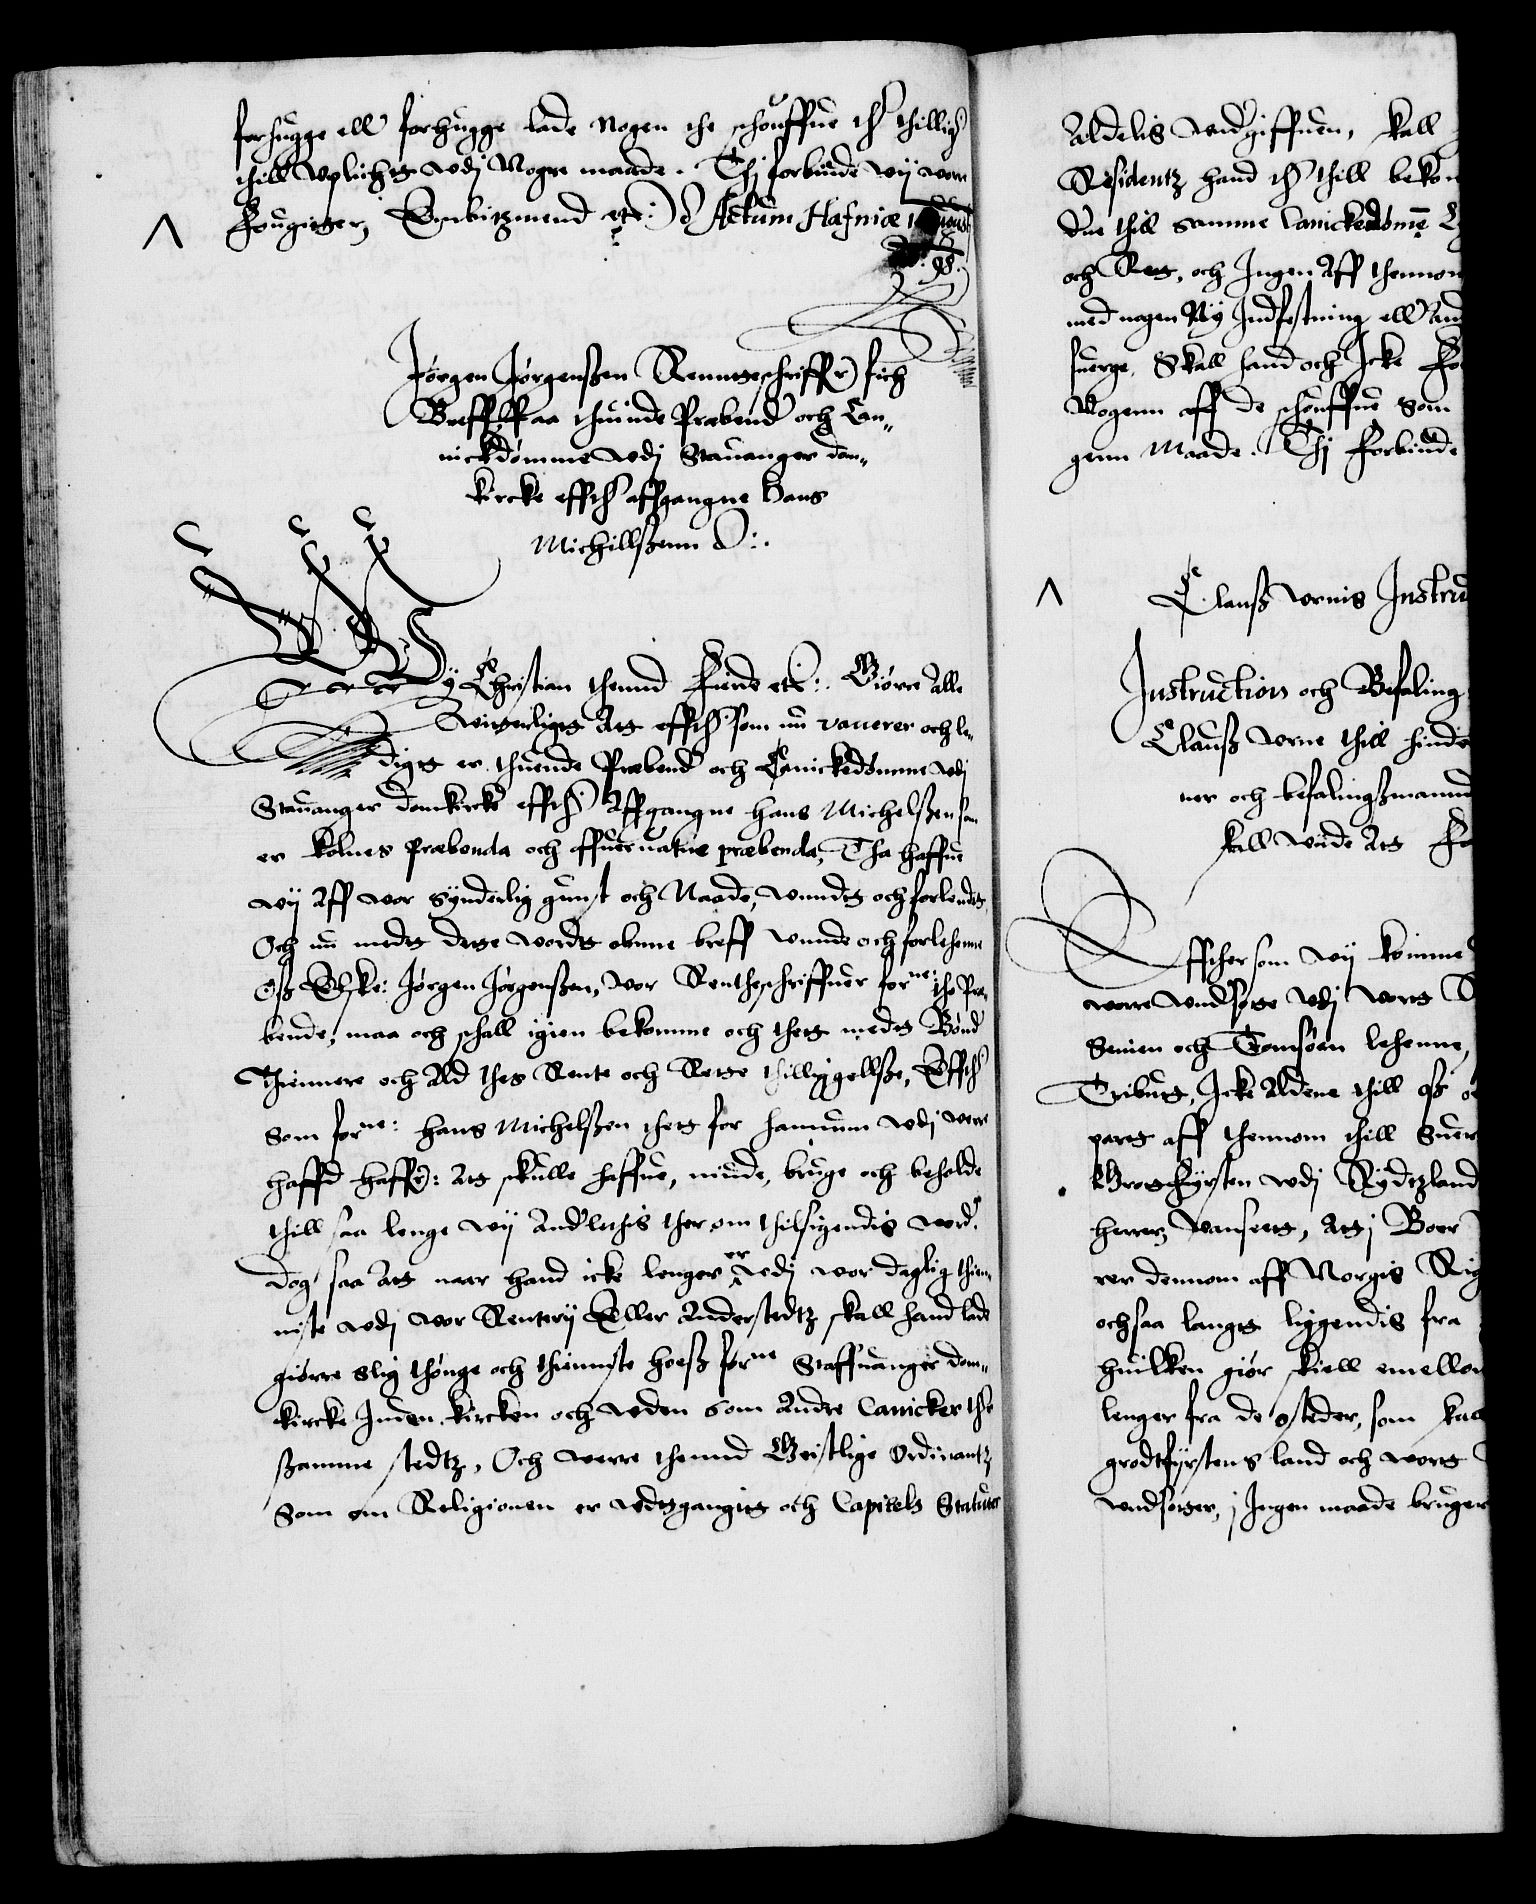 forhugge eller forhugge lade nogen the schouffue ther thilligh
thill uplichtt wdj Nogre maade. Thj forbiude wij wore
Fougitter, Embitzmend etc: Actum Hafniæ
Jørgen Jørgenßen Renntteschriffr fich
Breff paa thuinde Præbend och Can„
nickdømme wdj Stauanger dom„
kircke effther affgangne Hans
Michillßenn
Wy Christian thennd Fierde etc: Giøre Alle
witterligtt Att effther som nu vacerer och le„
digtt er thuende Præbend och Canickedømme wdj
Stauanger domkircke effther Affgangne Hans Michelßen som
er Kolnes Præbenda och præbenda, Tha haffue
wij Aff wor synderlig gunst och Naade, wundt och forlendt,
Och nu medt dette wordt obnne breff wunde och forlehenne
Oß Elske: Jørgen Jørgenßen, wor Rentheschriffuer forne: tho Præ„
bende, maa och schall igien bekomme och thett medt Bønd
Thiennere och Ald thes Rente och Rette thilliggellße, Effther
som forne: Hans Michelßen thett for hannum wdj were
haffd haffr: Att skulle haffue, niude, bruge och beholde
thill saa lenge wij Anderledis ther om thilsigendis word.
Dog saa Att naar hand icke lenger er wdj wor daglig thien„
niste wdj wor Renterij Eller Anderstedtz skall hand lade
giørre slig thønge och thienniste hoeß forne Staffuanger dom„
kircke Inden kircken och wden som Andre Canicker ther
ßamme stedtz, Och werre thennd Geistlige Ordinantz
Som om Religionen er wdtgangitt och Capitels Statuter
Aldelis wndgiffuen, skall
Residentz hand ther thill bekom
due thill samme Canickedøme
och Rett, och Ingen Aff thennom
med nogen Ny Indfestning eller And
suerge. Skall hand och Icke Fo
Nogenn aff de schouffue som
genn Maade. Thj Forbiude
Clauß Vrnis Instruc
Instruction och Befaling
Clauß Vrne thill hinde
ner och befalingßmannd
skall wiide Att Fo
Effther som wij komme
worre wndsotte wdj wortt
Senien och Tomsøen lehenne,
Tribut, Icke Aldene thill oß
partt aff thennom thill Suer
Grotfyrsten wdj Rydtzland
herrer, Wanseett, Att j Boer
rer dennom aff Norgis Rig
ochsaa langtt liggendis fra
huilken giør skiell emellom
lenger fra de østeder, som
grodtfyrstens land och wortt
wndsotter, j Ingen maade bruger